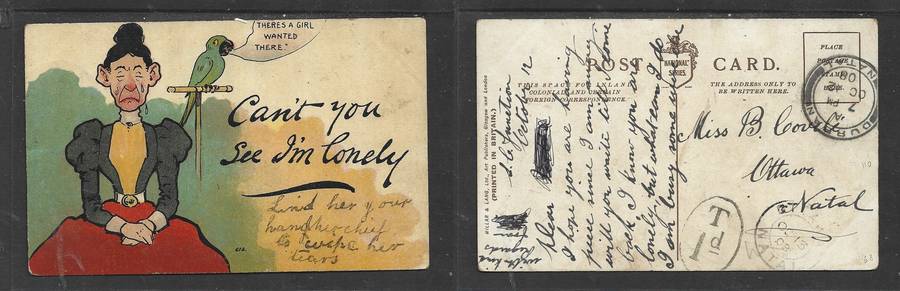 "THERES A GIRL
WANTED
THERE."
Can't you
See I'm lonely
Lind her your
handkerchief
to wipe her
tears
612.
POST CARD.
"NATIONAL"
SERIES.
THIS SPACE FOR INLAND,
COLONIAL AND CERTAIN
FOREIGN CORRESPONDENCE.
THE ADDRESS ONLY TO
BE WRITTEN HERE.
PLACE
POSTAGE
STAMP
HERE.
MILLAR & LANG, LTD., Art Publishers, Glasgow and London
(PRINTED IN BRITAIN.)
Junction
October 12
Dear
I hope you are having
nice time I am
will you write to me soon
back I know you are
lonely, but what can I do
I ask
with love
regards
Miss B.
Ottawa
Natal
DURBAN
7 PM
OC 7
08
NATAL
T
1d